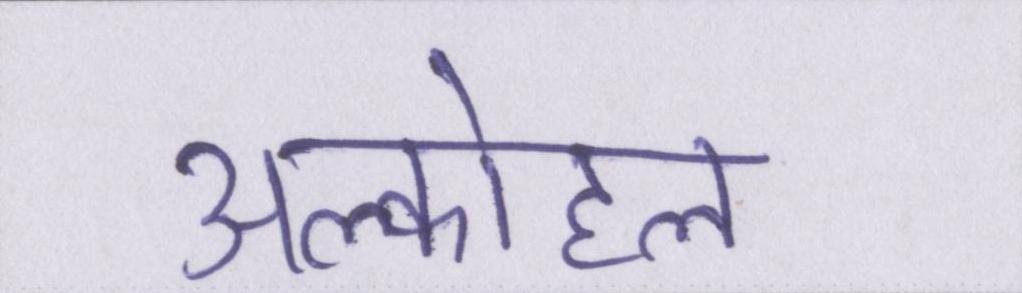 अल्कोहल